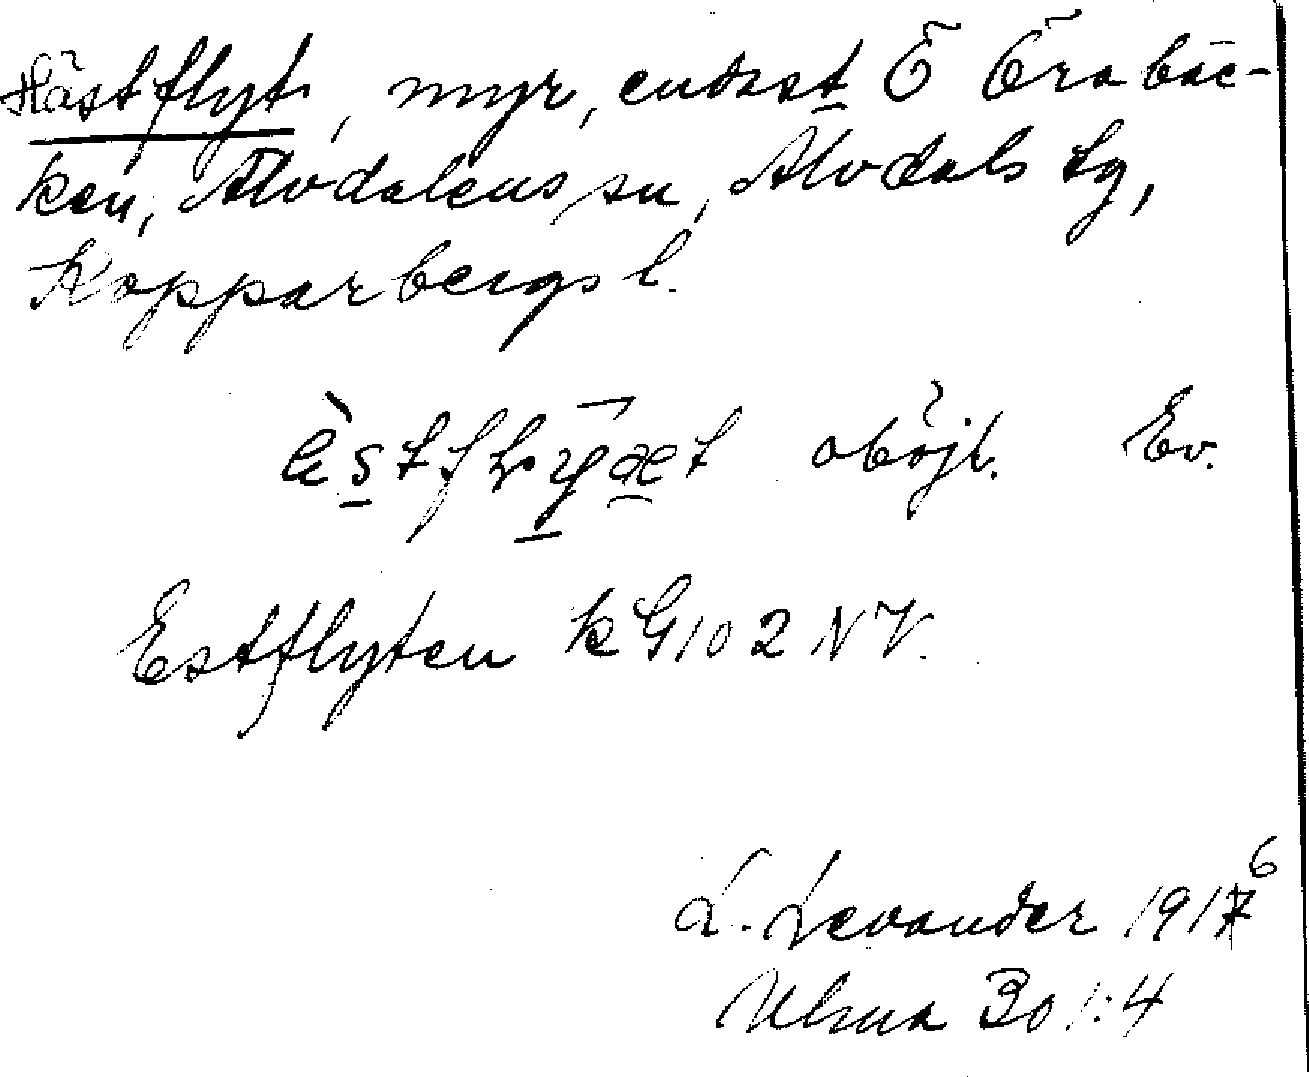 Hästflyt, myr, endast Ö Öra bäc-
ken, Älvdalens sn, Älvdals tg,
Kopparbergs l.
oböjl. Ev.
Estflyten kG 102 NV.
L. Levander 1917 6
Ulma 30 1:4